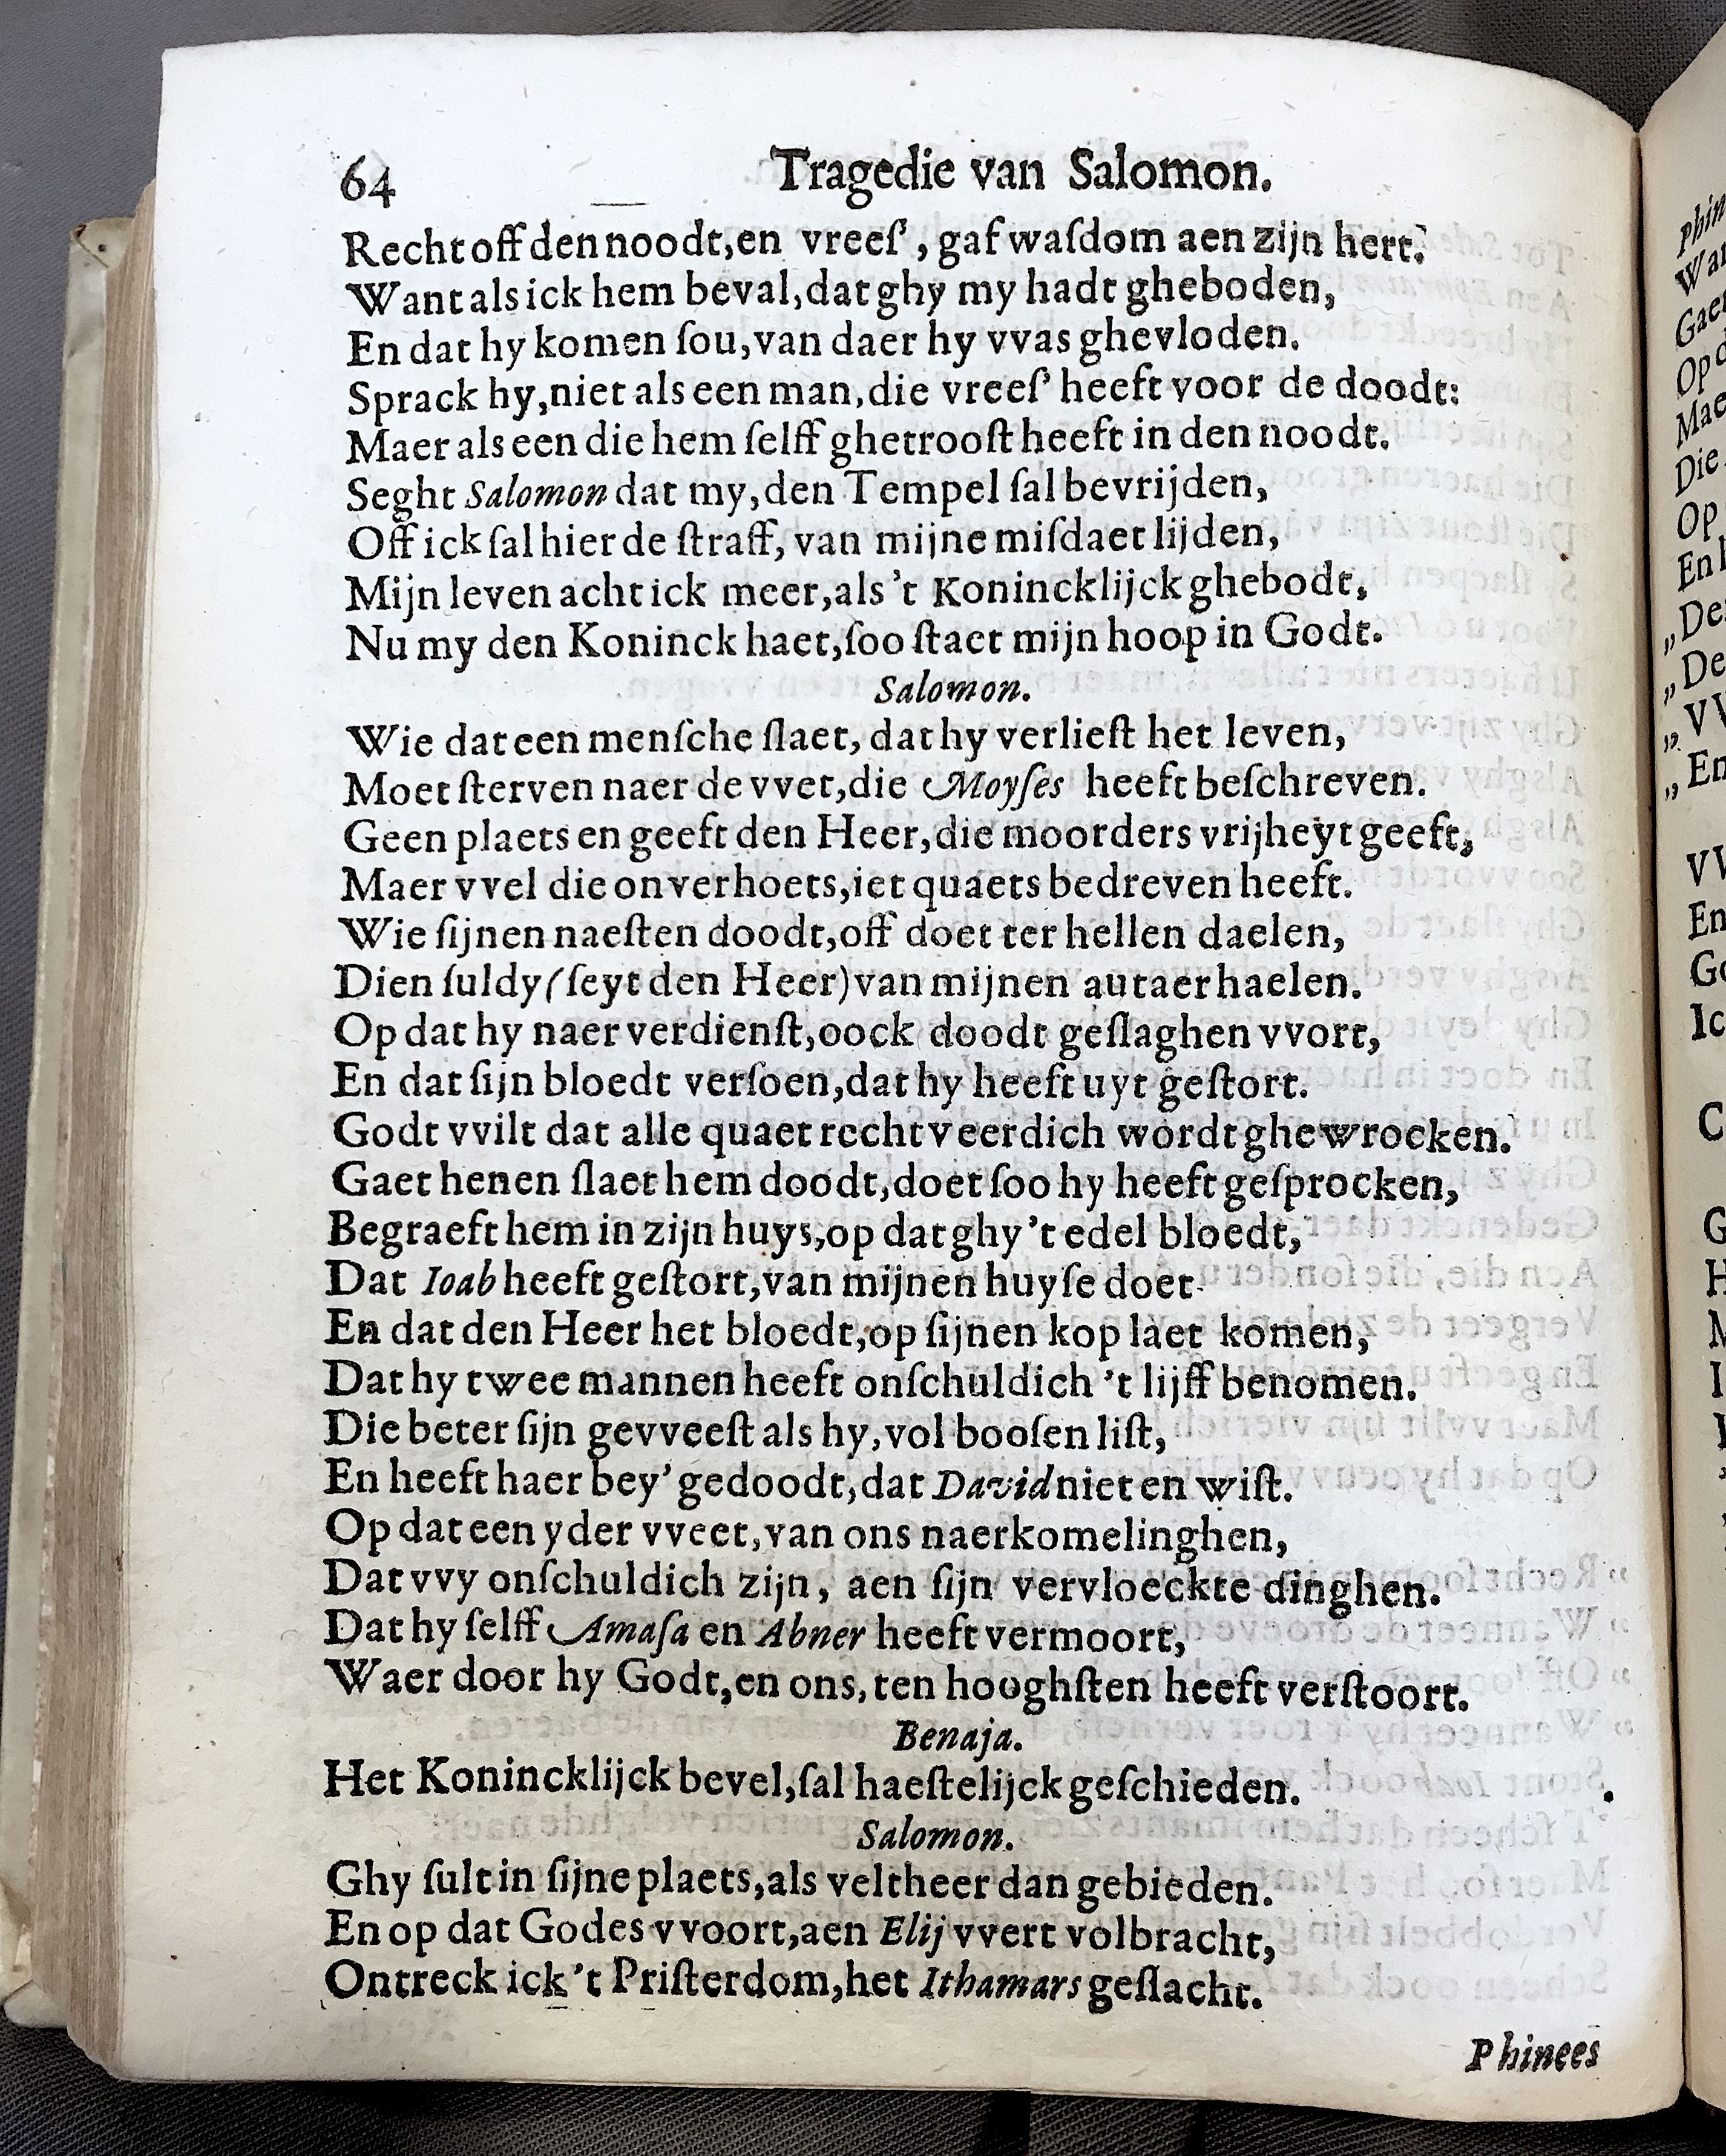 64 Tragedie van Salomon.
Recht off den noodt, en vreeſ', gaf waſdom aen zijn hert.
Want als ick hem beval, dat ghy my hadt gheboden,
En dat hy komen ſou, van daer hy vvas ghevloden.
Sprack hy, niet als een man, die vreeſ' heeft voor de doodt:
Maer als een die hem ſelff ghetrooſt heeft in den noodt.
Seght Salomon dat my, den Tempel ſal bevrijden,
Off ick ſal hier de ſtraff, van mijne miſdaet lijden,
Mijn leven acht ick meer, als 't Konincklijck ghebodt,
Nu my den Koninck haet, ſoo ſtaet mijn hoop in Godt.
Salomon.
Wie dat een menſche ſlaet, dat hy verlieſt het leven,
Moet ſterven naer de vvet, die Moyſes heeft beſchreven.
Geen plaets en geeft den Heer, die moorders vrijheyt geeft,
Maer vvel die onverhoets, iet quaets bedreven heeft.
Wie ſijnen naeſten doodt, off doet ter hellen daelen,
Dien ſuldy (ſeyt den Heer) van mijnen autaer haelen.
Op dat hy naer verdienſt, oock doodt geſlaghen vvort,
En dat ſijn bloedt verſoen, dat hy heeft uyt geſtort.
Godt vvilt dat alle quaet rechtveerdich wordt ghewrocken.
Gaet henen ſlaet hem doodt, doet ſoo hy heeft geſprocken,
Begraeft hem in zijn huys, op dat ghy 't edel bloedt,
Dat Ioab heeft geſtort, van mijnen huyſe doet.
En dat den Heer het bloedt, op ſijnen kop laet komen,
Dat hy twee mannen heeft onſchuldich 't lijff benomen.
Die beter ſijn gevveeſt als hy, vol booſen liſt,
En heeft haer bey' gedoodt, dat David niet en wiſt.
Op dat een yder vveet, van ons naerkomelinghen,
Dat vvy onſchuldich zijn, aen ſijn vervloeckte dinghen.
Dat hy ſelff Amaſa en Abner heeft vermoort,
Waer door hy Godt, en ons, ten hooghſten heeft verſtoort.
Benaja.
Het Konincklijck bevel, ſal haeſtelijck geſchieden.
Salomon.
Ghy ſult in ſijne plaets, als veltheer dan gebieden.
En op dat Godes vvoort, aen Elij vvert volbracht,
Ontreck ick 't Priſterdom, het Ithamars geſlacht.
Phinees